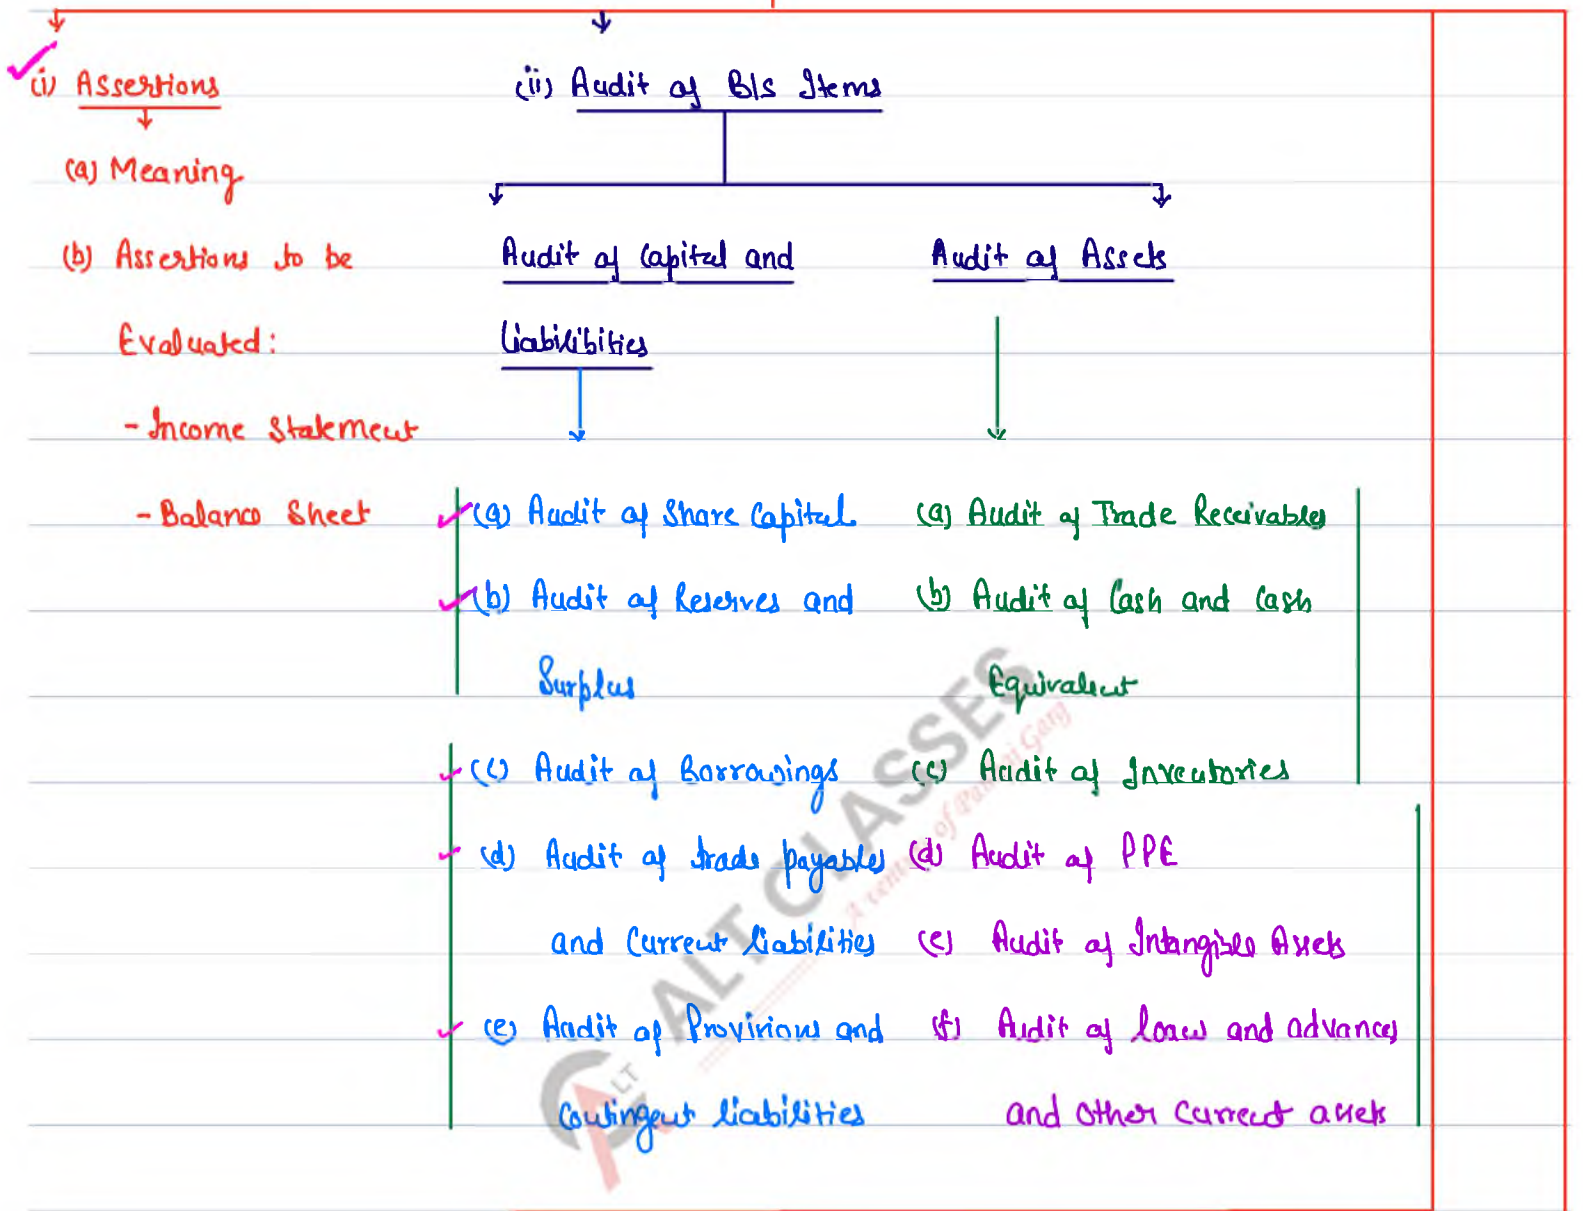 (i) Assertions
(a) Meaning
(b) Assertions to be
Evaluated:
- Income Statement
- Balance Sheet
(ii) Audit of B/S Items
Audit of Capital and
Liabilibities
(a) Audit of Share Capital
(b) Audit of Reserves and
Surplus
(c) Audit of Borrowings
(d) Audit of trade payables
and Current liabilities
(e) Audit of Provisions and
Contingent liabilities
Audit of Assets
(a) Audit of Trade Receivables
(b) Audit of Cash and Cash
Equivalent
(c) Audit of Inventories
(d) Audit of PPE
(e) Audit of Intangible Assets
(f) Audit of loans and advances
and other current assets
ALT CLASSES
A venture of Pankaj Garg
ALT